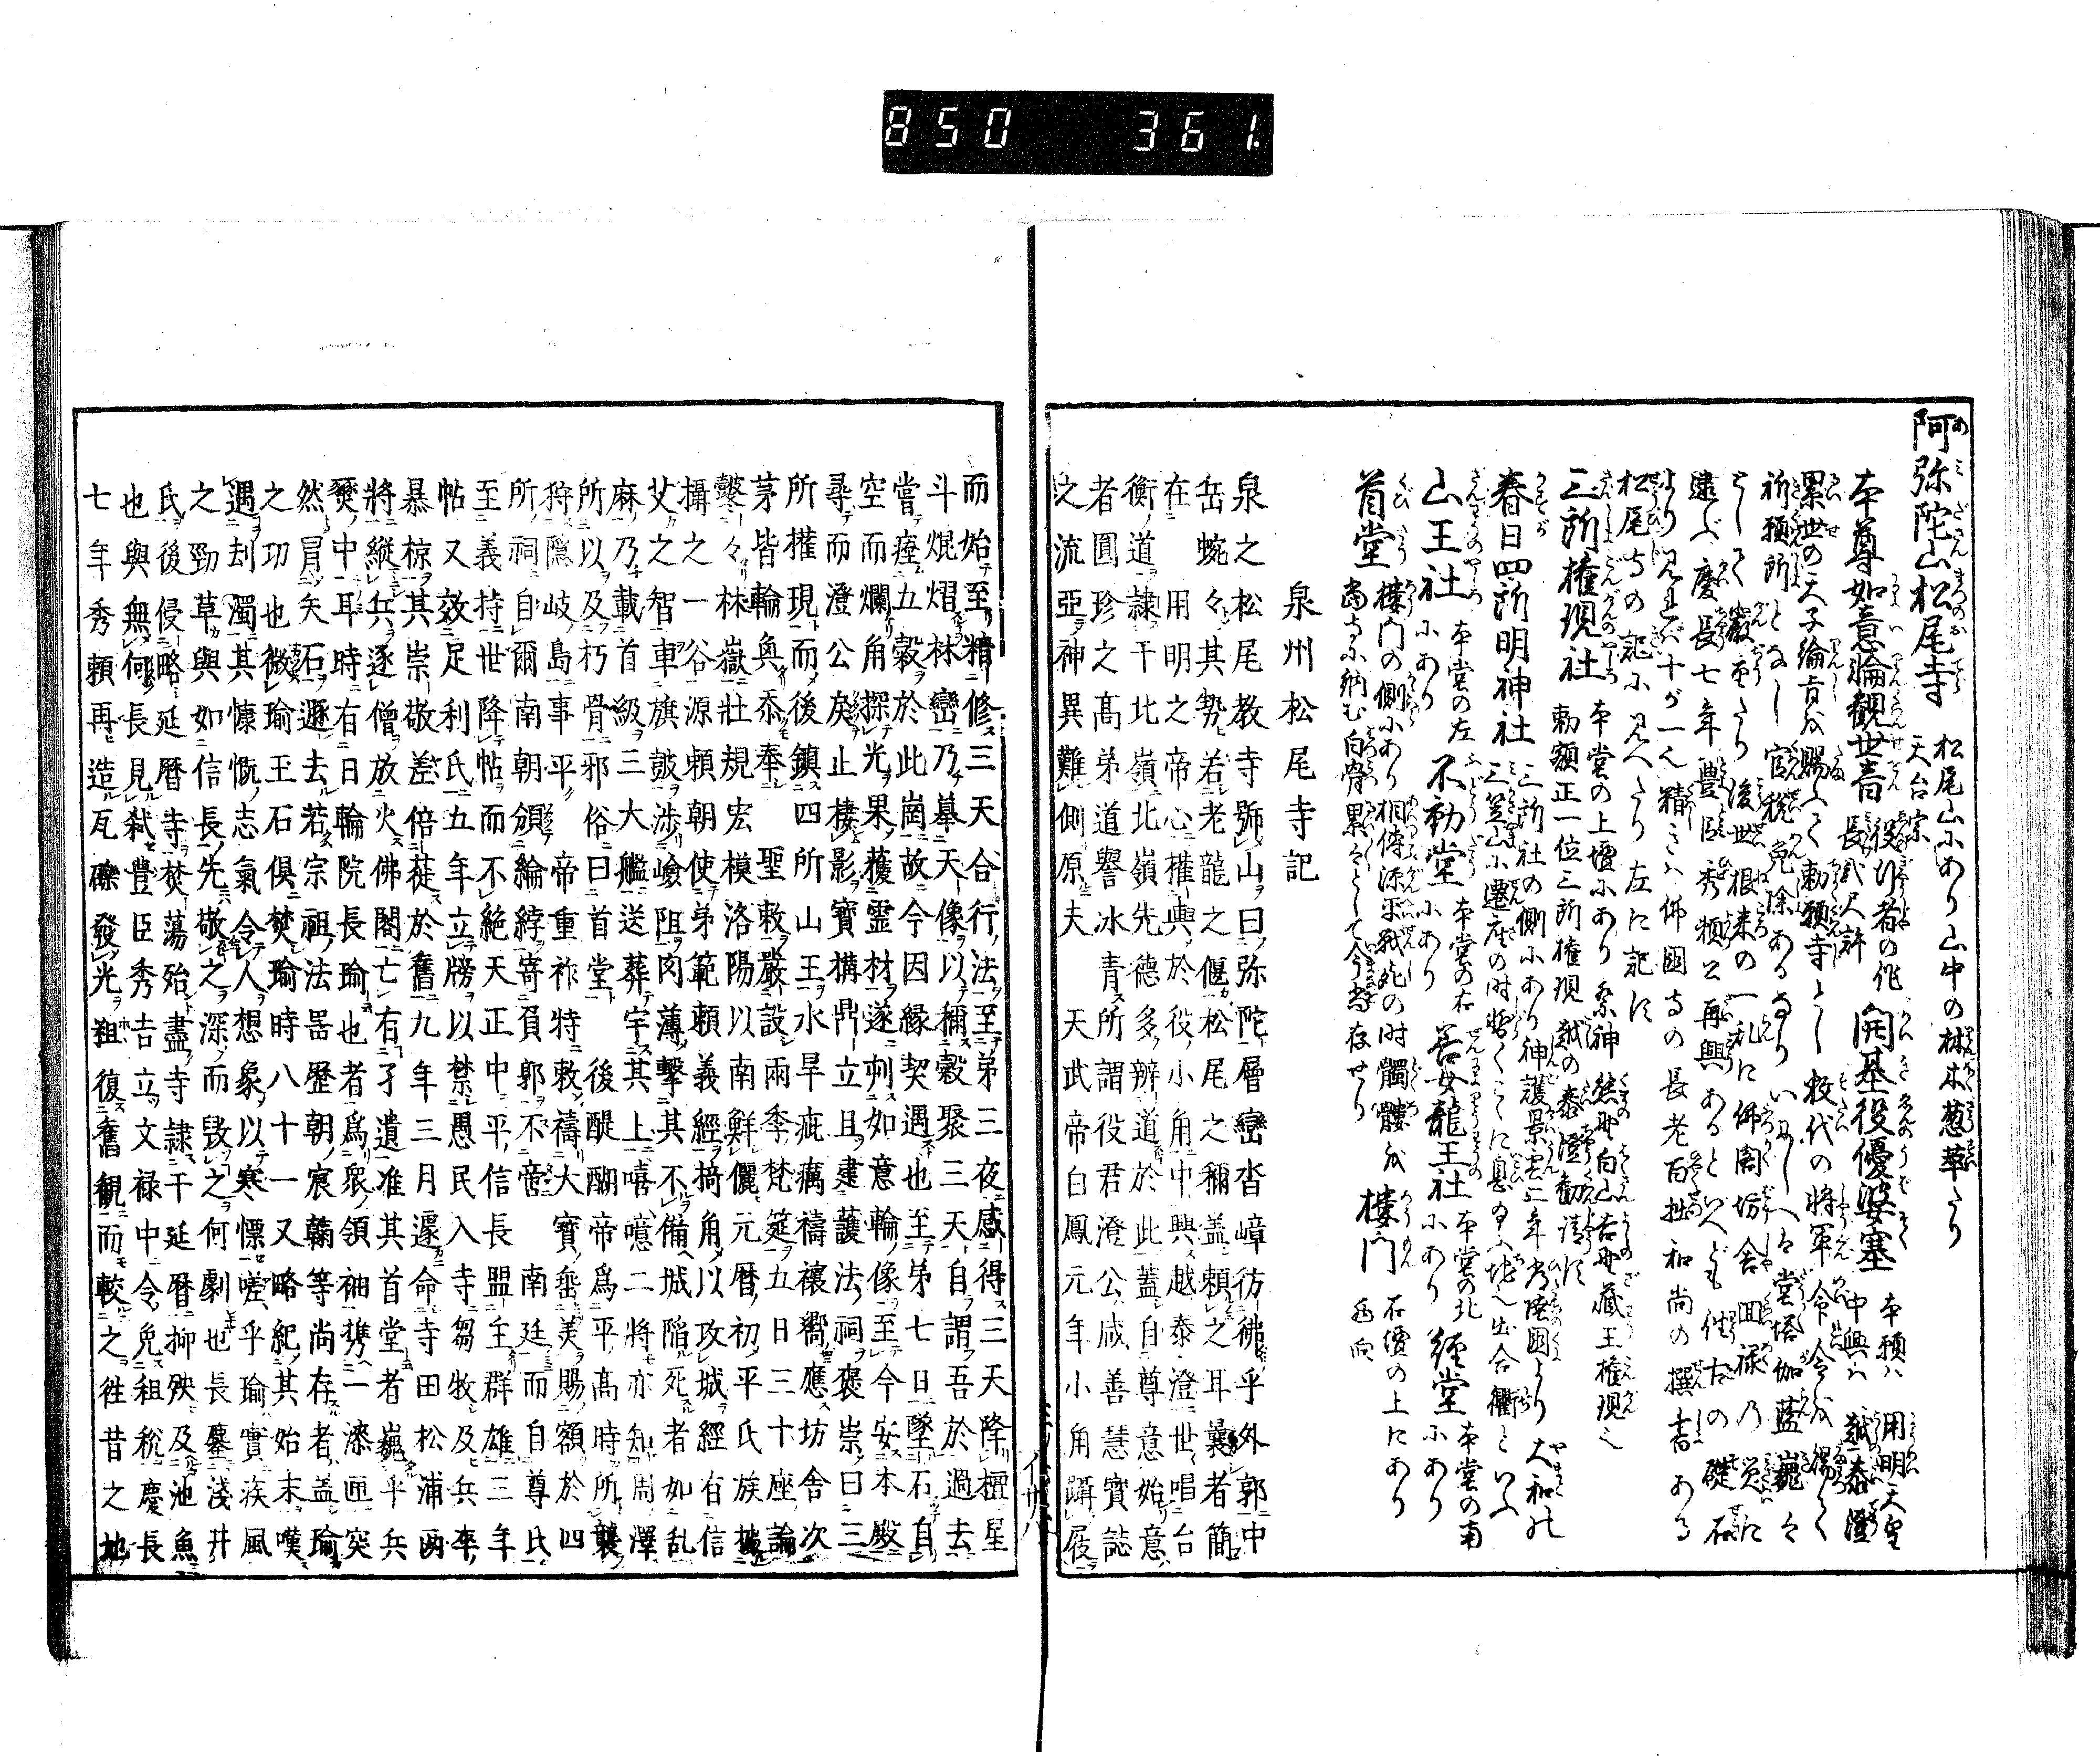 850 361
阿弥陀山松尾寺 松尾山にあり山中の林木葱翠たり
天台宗
本尊如意輪観世音 役行者の作
長八尺許
開基役優婆塞 中興ハ越泰澄
本願ハ用明天皇
累世の天子綸旨を賜ふて勅願寺とし 数代の将軍令命を賜て
祈願所となし 官税免除あるなりいにしへハ堂塔伽藍巍々
として厳重たり後世根来の一乱に佛閣坊舎回禄乃災に
逮ぶ慶長七年豊臣秀頼公再興あるといへども往古の礎石
より見れバ十が一ん精きハ佛国寺の長老百拙和尚の撰書ある
松尾寺の記に見へたり左に記す
三所権現社 本堂の上壇にあり祭神 熊野白山吉野蔵王権現也
勅額正一位三所権現 越の泰澄勧請す
春日四所明神社 三所社の側にあり神護景雲二年常陸国より大和の
三笠山に遷座の时暫くこゝに息ふ地へ出合衢といふ
山王社 本堂の左
にあり
不動堂 本堂の右
にあり
善女龍王社 本堂の北
にあり
経堂 本堂の南
にあり
首堂 楼門の側にあり相傳源平戦死の时髑髏を
当寺に納む白骨累々として今尚存せり
楼門 石壇の上にあり
西向
泉州松尾寺記
泉之松尾教寺號山曰弥陀層巒沓嶂彷彿乎外郭中
岳蜿々其勢若老龍之偃松尾之稱盖頼之耳曩者簡
在用明之帝心權輿於役小角中興越泰澄世唱台
衡道隷于北嶺北嶺先德多辨道於此蓋自尊意始意
者圓珍之髙弟道譽冰青所謂役君澄公咸善慧實誌
之流亞神異難側原夫 天武帝白鳳元年小角躡屐
而始至精修三天合行法至第三夜感得三天降檀星
斗焜熠林巒乃摹天像以秘穀聚三天自謂吾於過去
嘗瘞五穀於此崗故今因縁契遇也至第七日墜石自
空而爛角探光果獲霊材遂刺如意輪像至今安本殿
尋而澄公戾止棲影寶構鼎立且建護法祠褒崇曰三
所權現而後鎮四所山王水旱疵癘禱禳嚮應坊舍次
茅皆輪奐忝奉 聖敕嚴設兩季梵筵五日三十座論
鑿々林嶽壯規宏模洛陽以南鮮儷元暦初平氏族據
攝之一谷源頼朝使弟範頼義經掎角以攻城經有信
艾之智車旗皷渉嶮阻肉薄撃其不備城陥死者如乱
麻乃載首級三大艦送葬宇其上嘻噫二將亦知周澤
所以及朽骨邪俗曰首堂 後醍醐帝爲平髙時所襲
狩隠岐島事平 帝重祚特敕禱大寳垂美賜額於四
所祠自爾南朝頒綸綍寄負郭不啻 南廷而自尊氏
至義持世降帖而不絶天正中平信長盟主群雄三年
帖又效足利氏五年立牓以禁愚民入寺芻牧及兵卒
暴椋其崇敬差倍蓰於舊九年三月遽命寺田松浦兩
將縦兵逐僧放火佛閣亡有孑遺准其首堂者巍乎兵
燹中耳時有日輪院長瑜也者爲衆領袖携一漆匣突
然冐矢石遯去若宗祖法器歴朝宸翰等尚存者盖瑜
之功也微瑜玉石倶焚瑜時八十一又略紀其始末嘆
遇刧濁其慷慨志氣令人想象以寒慄嗟乎瑜實疾風
之勁草與如信長先敬之深而毀之何劇也長墓淺井
氏後侵略延暦寺焚蕩殆盡寺隷干延暦抑殃及池魚
也與無何長見弑豊臣秀吉立文禄中令免租税慶長
七年秀頼再造瓦礫發光粗復舊観而較之徃昔之地